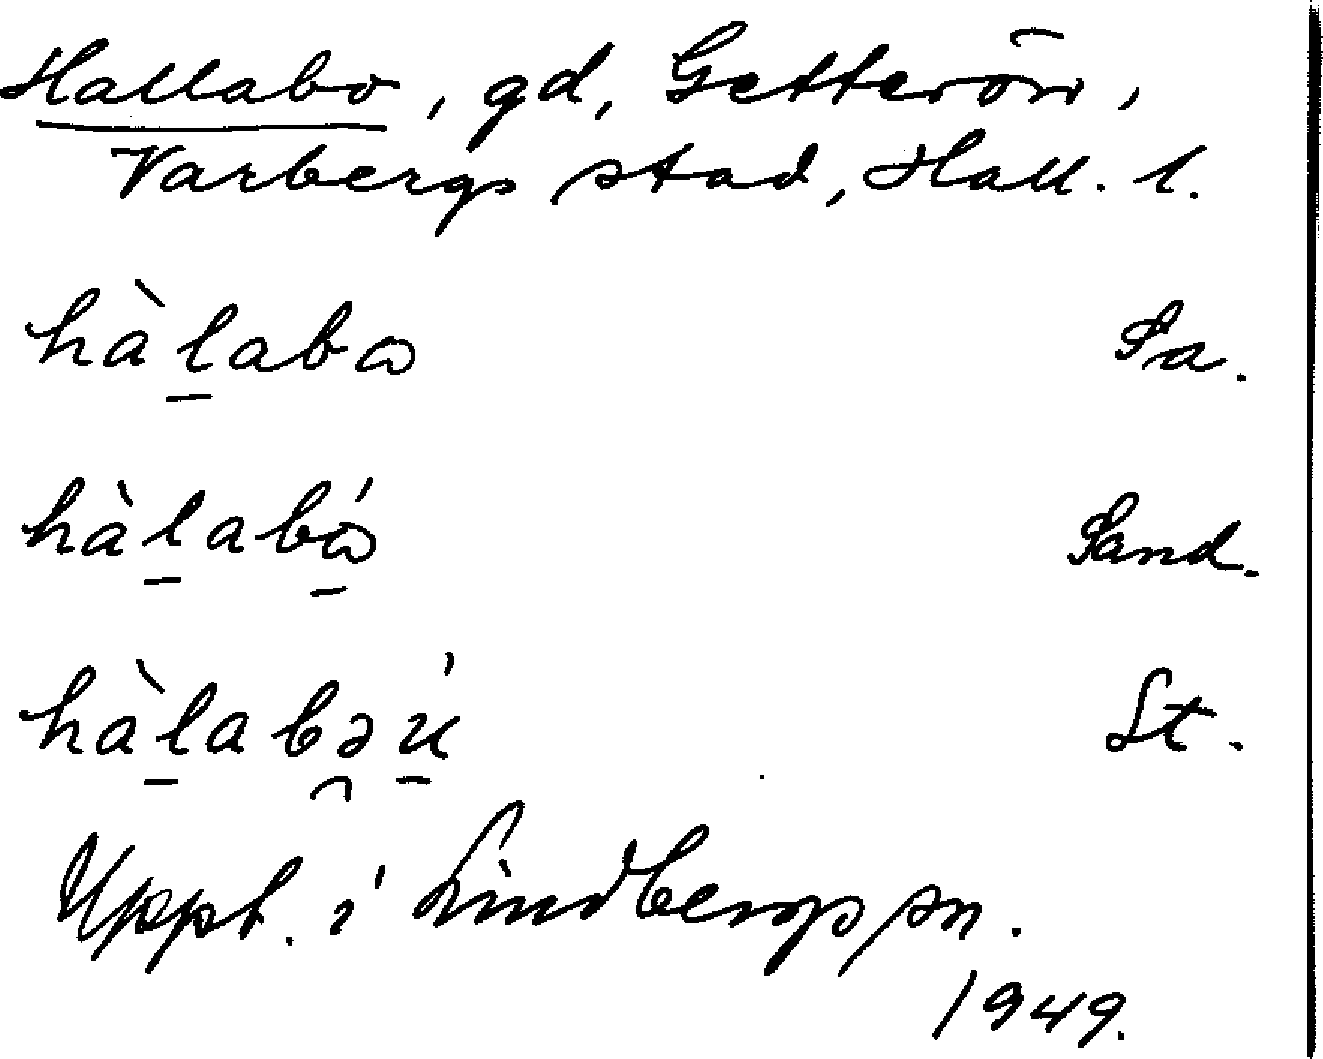 Hallabo, gd, Getterön,
Varbergs stad, Hall. l.
hàl̲abɷ Sa.
hàl̲abɷ̲́ Sand.
hàl̲abə̯ú̲ St.
Uppt. i Lindbergs sn.
1949.